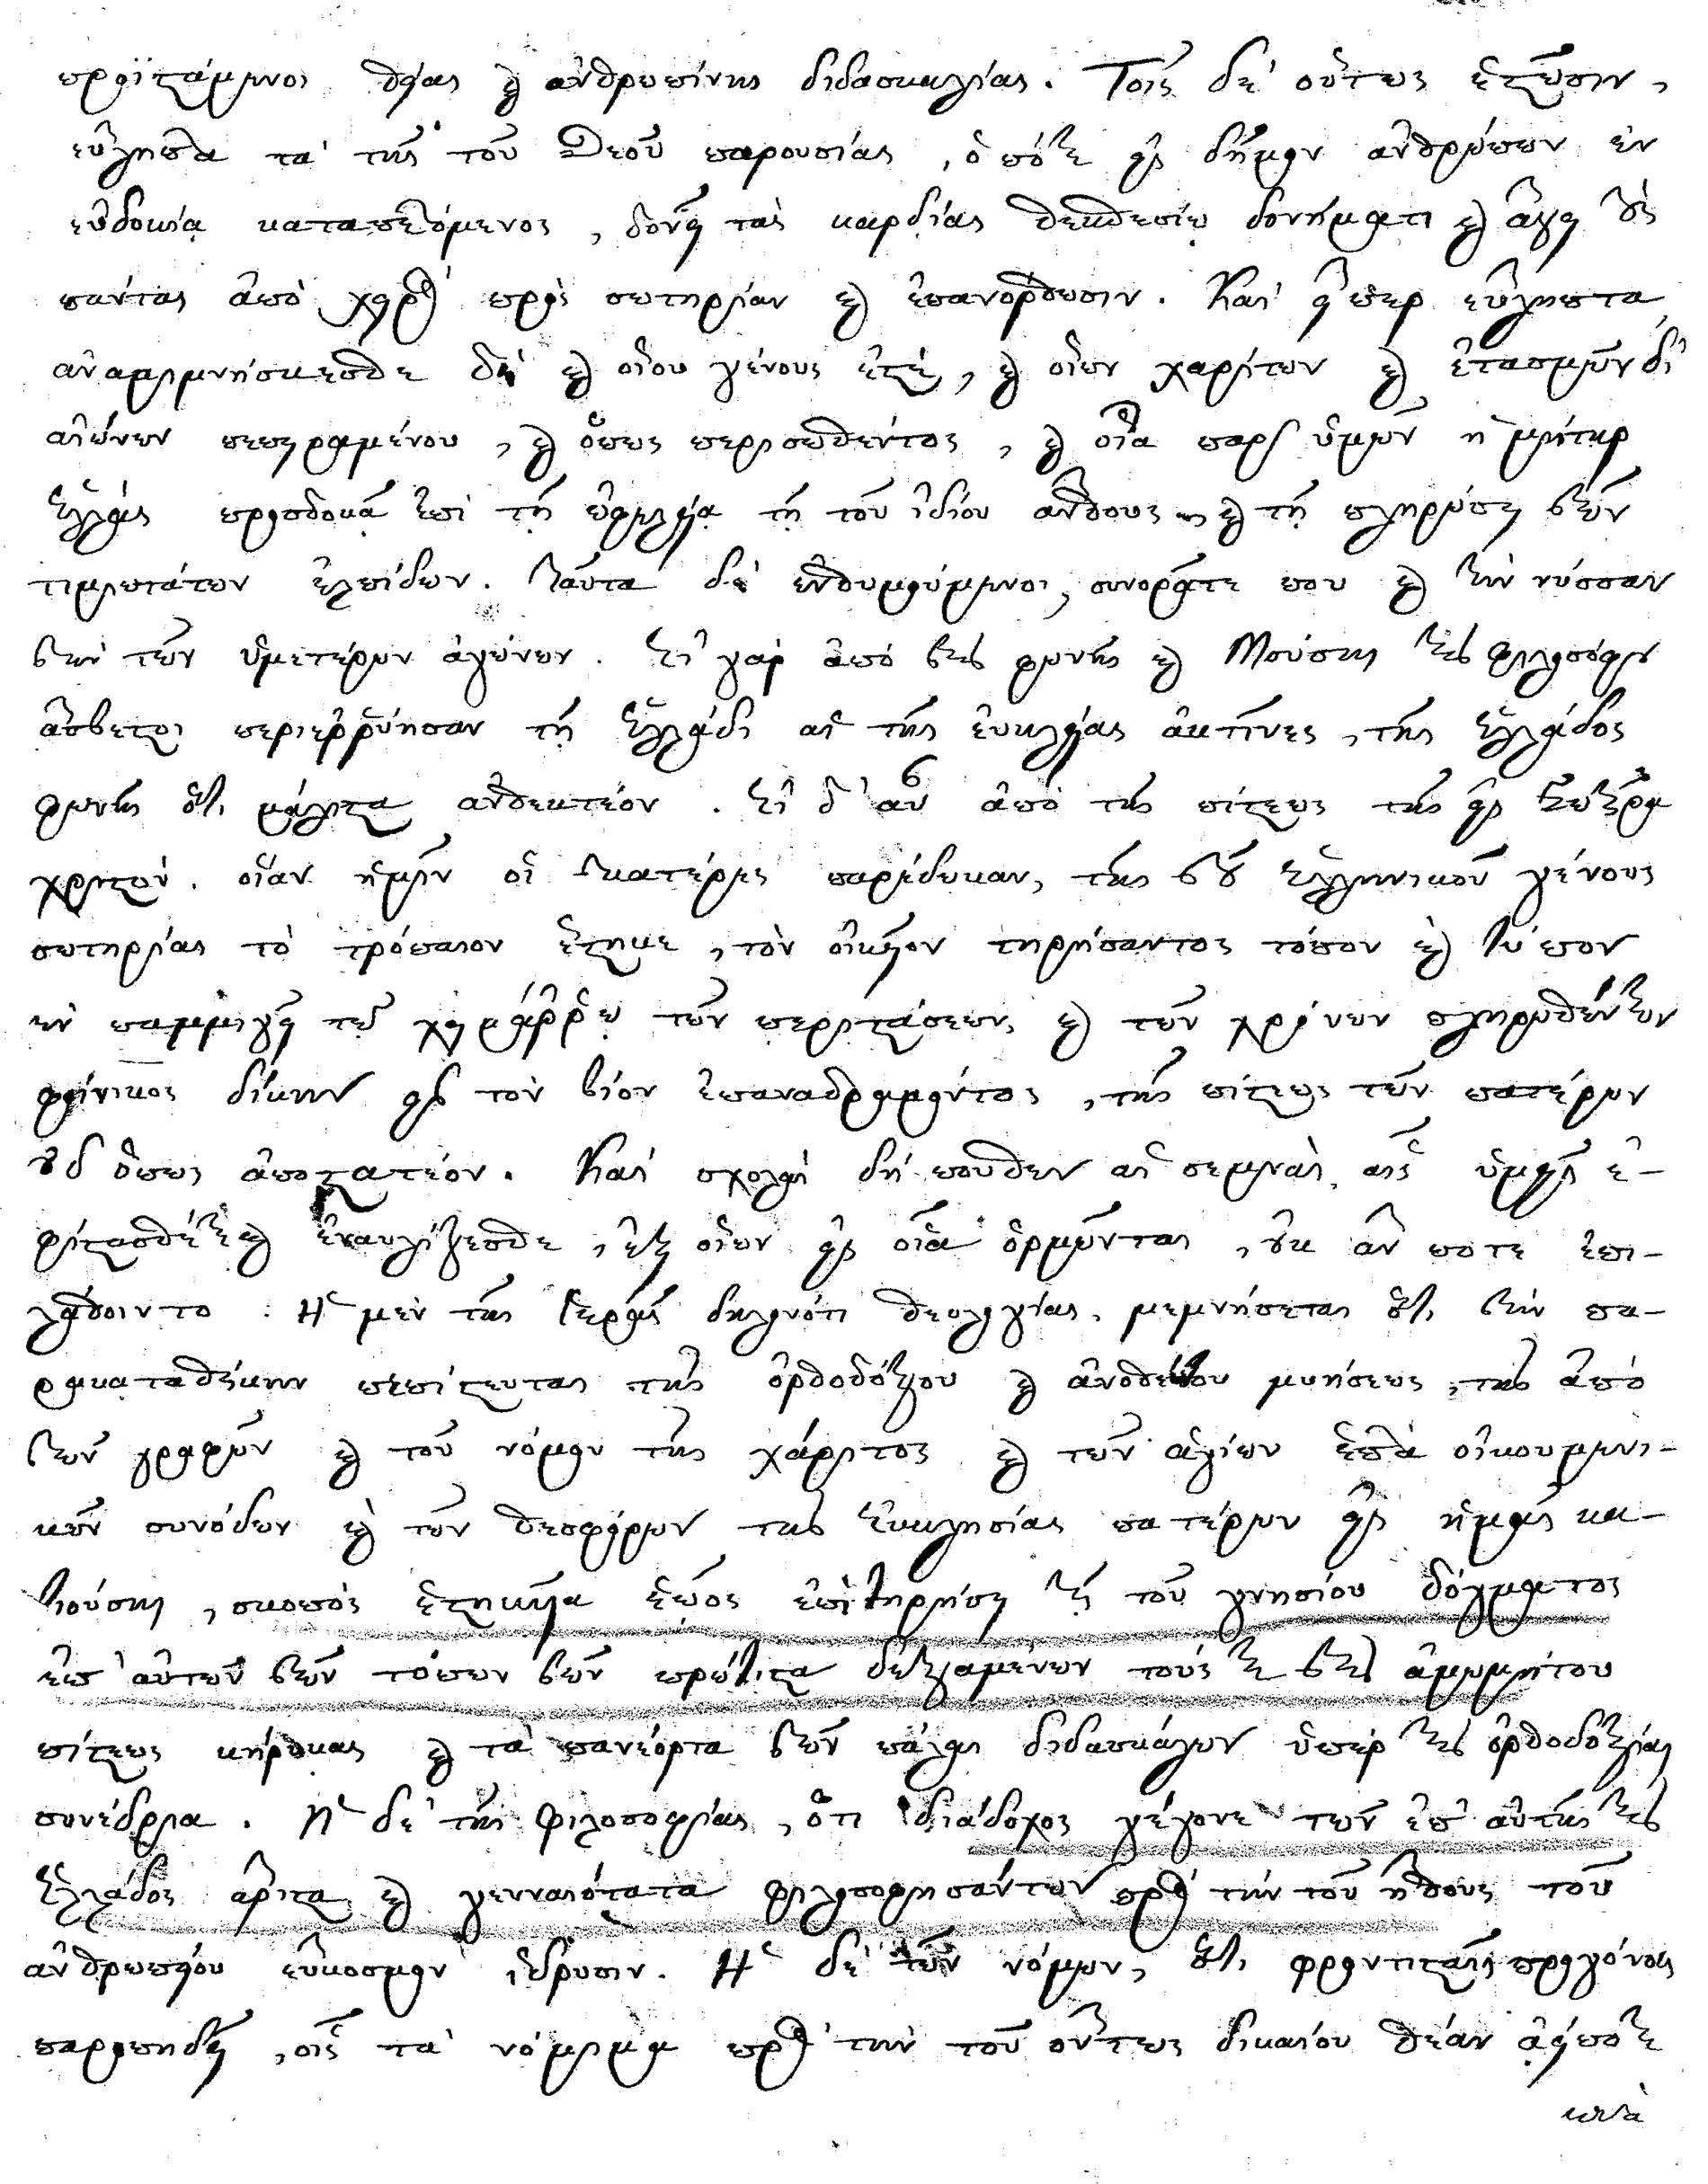 προϊστάμενοι θείας καὶ ἀνθρωπίνης διδασκαλίας. Τοῖς δὲ οὕτως ἑστῶσιν,
εὔληπτα τὰ τῆς τοῦ Θεοῦ παρουσίας, ὁπότε εἰς δῆμον ἀνθρώπων ἐν
εὐδοκίᾳ καταπεμπόμενος, δονεῖ τὰς καρδίας θεκδεσίῳ δονήματι καὶ ἄγει τοὺς
πάντας ἀπὸ χειρὸς πρὸς σωτηρίαν καὶ ἐπανόρθωσιν. Καὶ εἴπερ εὔληπτα
ἀναμιμνήσκεσθε δὲ καὶ οἵου γένους ἐστέ, καὶ οἵων χαρίτων καὶ ἐτασμῶν δι'
αἰώνων πεπειραμένου, καὶ ὅπως περισωθέντος, καὶ οἷα παρ' ὑμῶν ἡ μήτηρ
Ἑλλὰς προσδοκᾷ ἐπὶ τῇ εὐμελείᾳ τῇ τοῦ ἰδίου ἄνθους, καὶ τῇ πληρώσει τῶν
τιμιωτάτων ἐλπίδων. Ταῦτα δὲ ἐνθυμούμενοι, συνορᾶτε που καὶ τὴν νύσσαν
τὴν τῶν ὑμετέρων ἀγώνων. Εἰ γὰρ ἀπὸ τῆς φωνῆς καὶ Μούσης τῆς φιλοσόφου
ἄσβεστοι περιερρύησαν τῇ Ἑλλάδι αἱ τῆς εὐκλείας ἀκτῖνες, τῆς Ἑλλάδος
φωνῆς ὅτι μάλιστα ἀνθεκτέον. Εἰ δ' αὖ ἀπὸ τῆς πίστεως τῆς εἰς Σωτῆρα
Χριστὸν. οἵαν ἡμῖν οἱ πατέρες παρέδωκαν, τῆς τοῦ Ἑλληνικοῦ γένους
σωτηρίας τὸ τρόπαιον ἔστηκε, τὸν οἰκεῖον τηρήσαντος τόπον καὶ τύπον
ἐν παμμιγεῖ τῷ χειμάρρῳ τῶν περιστάσεων, καὶ τῶν χρόνων πληρωθέντων
φοίνικος δίκην εἰς τὸν βίον ἐπαναδραμόντος, τῆς πίστεως τῶν πατέρων
οὐδ' ὅπως ἀποστατέον. Καὶ σχολαὶ δήπουθεν αἱ σεμναὶ, αἷς ὑμεῖς ἐ-
φίστασθέ τε καὶ ἐναυλίζεσθε, ἐξ οἵων εἰς οἷα ὁρμῶνται, οὐκ ἄν ποτε ἐπι-
λάθοιντο. Ἡ μὲν τῆς ἱερᾶς δηλονότι θεολογίας, μεμνήσεται ὅτι τὴν πα-
ρακαταθήκην πεπίστευται τῆς ὀρθοδόξου καὶ ἀνοθεύτου μυήσεως, τῆς ἀπὸ
τῶν γραφῶν καὶ τοῦ νόμου τῆς χάριτος καὶ τῶν ἁγίων ἑπτὰ οἰκουμενι-
κῶν συνόδων καὶ τῶν θεοφόρων τῆς ἐκκλησίας πατέρων εἰς ἡμᾶς κα-
τιούσης, σκοπὸς ἑστηκυῖα ἕῳος ἐπὶ τηρήσει τῇ τοῦ γνησίου δόγματος
ἐπ' αὐτῶν τῶν τόπων τῶν πρώτιστα δεξαμένων τούς τε τῆς ἀμωμήτου
πίστεως κήρυκας καὶ τὰ πανέορτα τῶν πάλαι διδασκάλων ὑπὲρ τῆς ὀρθοδοξίας
συνέδρια. Ἡ δὲ τῆς φιλοσοφίας, ὅτι διάδοχος γέγονε τῶν ἐπ' αὐτῆς τῆς
Ἑλλάδος ἄριστα καὶ γενναιότατα φιλοσοφησάντων πρὸς τὴν τοῦ ἤθους τοῦ
ἀνθρωπείου εὔκοσμον ἵδρυσιν. Ἡ δὲ τῶν νόμων, ὅτι φροντισταῖς προγόνοις
παροπηδεῖ, οἷς τὰ νόμιμα πρὸς τὴν τοῦ ὄντως δικαίου θέαν ἀείποτε